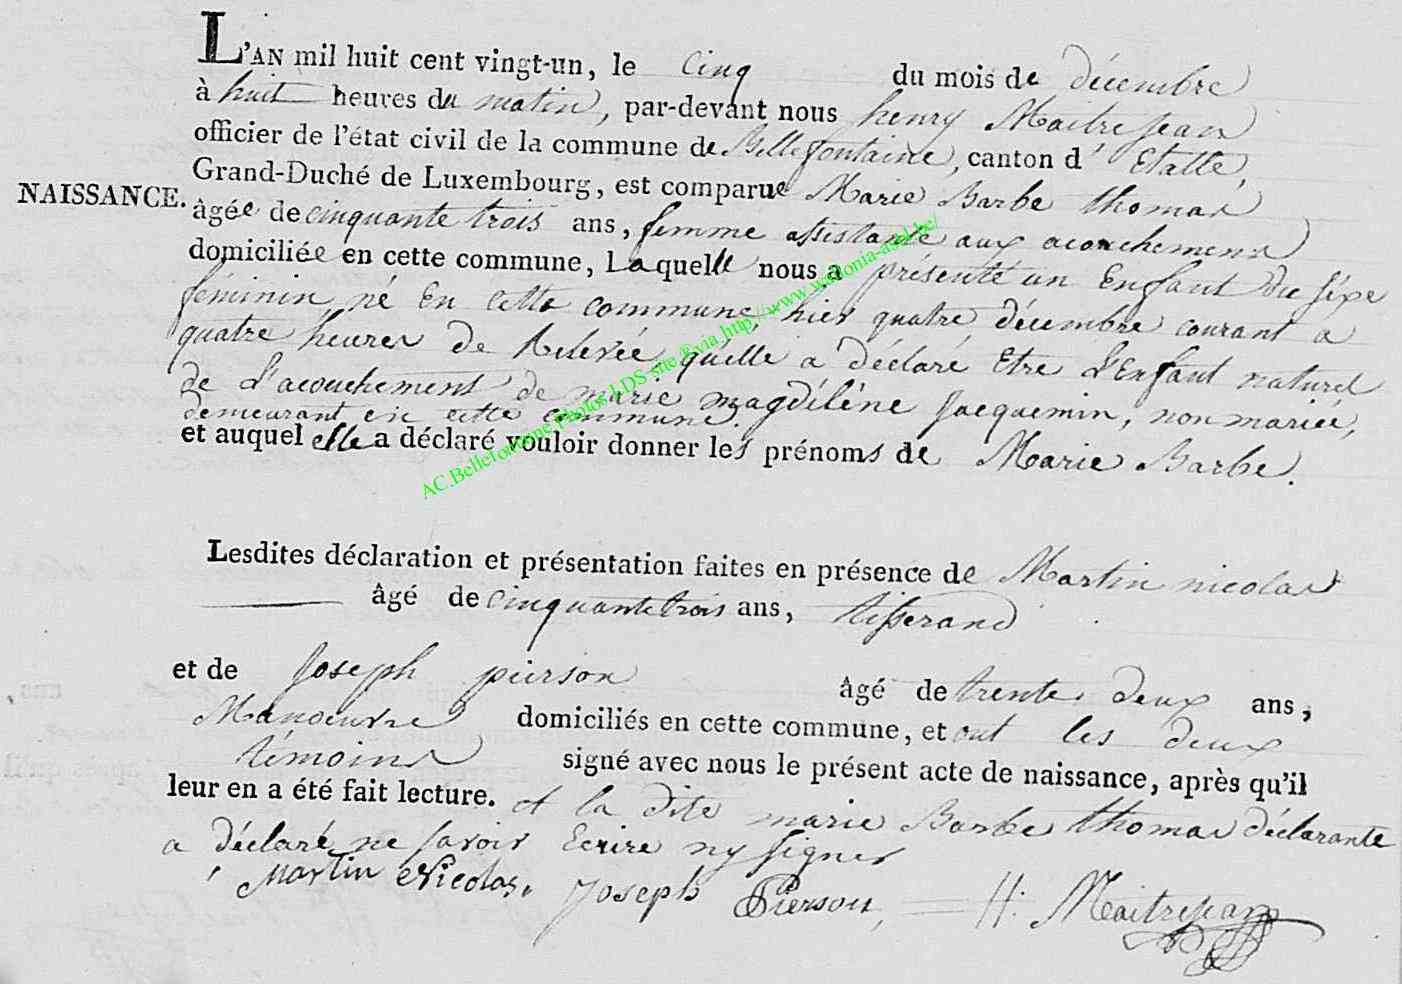 L'AN mil huit cent vingt-un, le cinq du mois de décembre
à huit heures du matin, par-devant nous henry Maitrejean
officier de l'état civil de la commune de Bellefontaine, canton d' Etalle,
Grand-Duché de Luxembourg, est comparue Marie Barbe thomas
NAISSANCE.
âgée de cinquante trois ans, femme assistante aux acouchemens
domiciliée en cette commune, Laquelle nous a présenté un Enfant du sexe
féminin né En cette commune, hier quatre décembre courant a
quatre heures de Relevée, quelle a déclaré Etre L'Enfant naturel
de L'acouchement de marie magdélène jacquemin, non mariée,
demeurant en cette commune.
et auquel elle a déclaré vouloir donner les prénoms de Marie Barbe.
AC.Bellefontaine Photos LDS site Évia http://www.wallonia-asbl.be/
Lesdites déclaration et présentation faites en présence de Martin nicolas
âgé de cinquante trois ans, tisserand
et de joseph pierson âgé de trente deux ans,
Manoeuvre domiciliés en cette commune, et ont les deux
témoins signé avec nous le présent acte de naissance, après qu'il
leur en a été fait lecture. et la dite marie Barbe thomas déclarante
a déclaré ne savoir Ecrire ny signer
Martin Nicolas. Joseph Pierson, H. Maitrejean